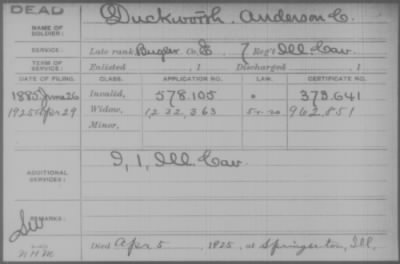 DEAD
NAME OF SOLDIER: Duckworth, Anderson C.
SERVICE: Late rank Bugler Co. E, 7 Reg't Ill Cav.
TERM OF SERVICE: Enlisted , 1 Discharged , 1
DATE OF FILING. CLASS. APPLICATION NO. LAW. CERTIFICATE NO.
1885 June 26 Invalid, 578.105 " 373.641
1925 Apr 29 Widow, 1232,363 962,851
Minor,
ADDITIONAL SERVICES: I, 1, Ill. Cav.
REMARKS:
Died Apr 5, 1925, at Springerton, Ill,